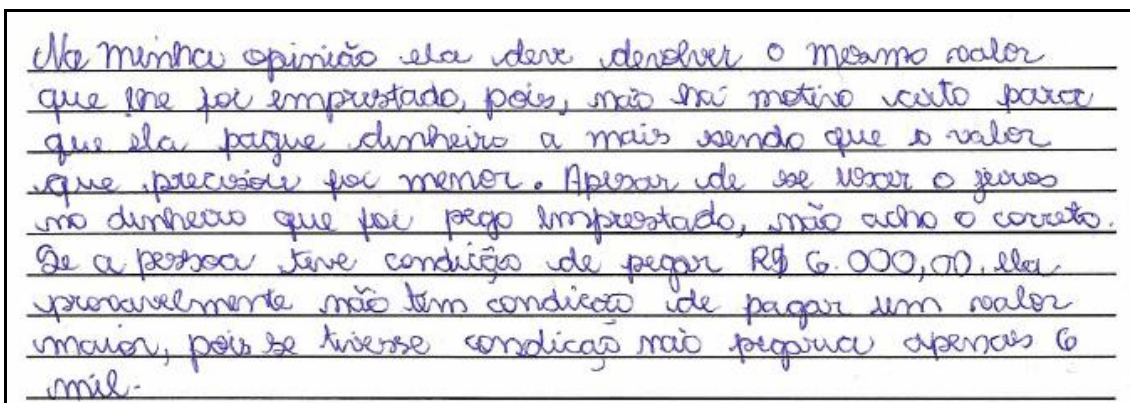 Na minha opinião ela deve devolver o mesmo valor
que lhe foi emprestado, pois, não há motivo certo para
que ela pague dinheiro a mais sendo que o valor
que precisou foi menor. Apesar de se usar o juros
no dinheiro que foi pego emprestado, não acho o correto.
Se a pessoa teve condição de pegar R$ 6.000,00, ela
provavelmente não tem condição de pagar um valor
maior, pois se tivesse condição não pegaria apenas 6
mil.